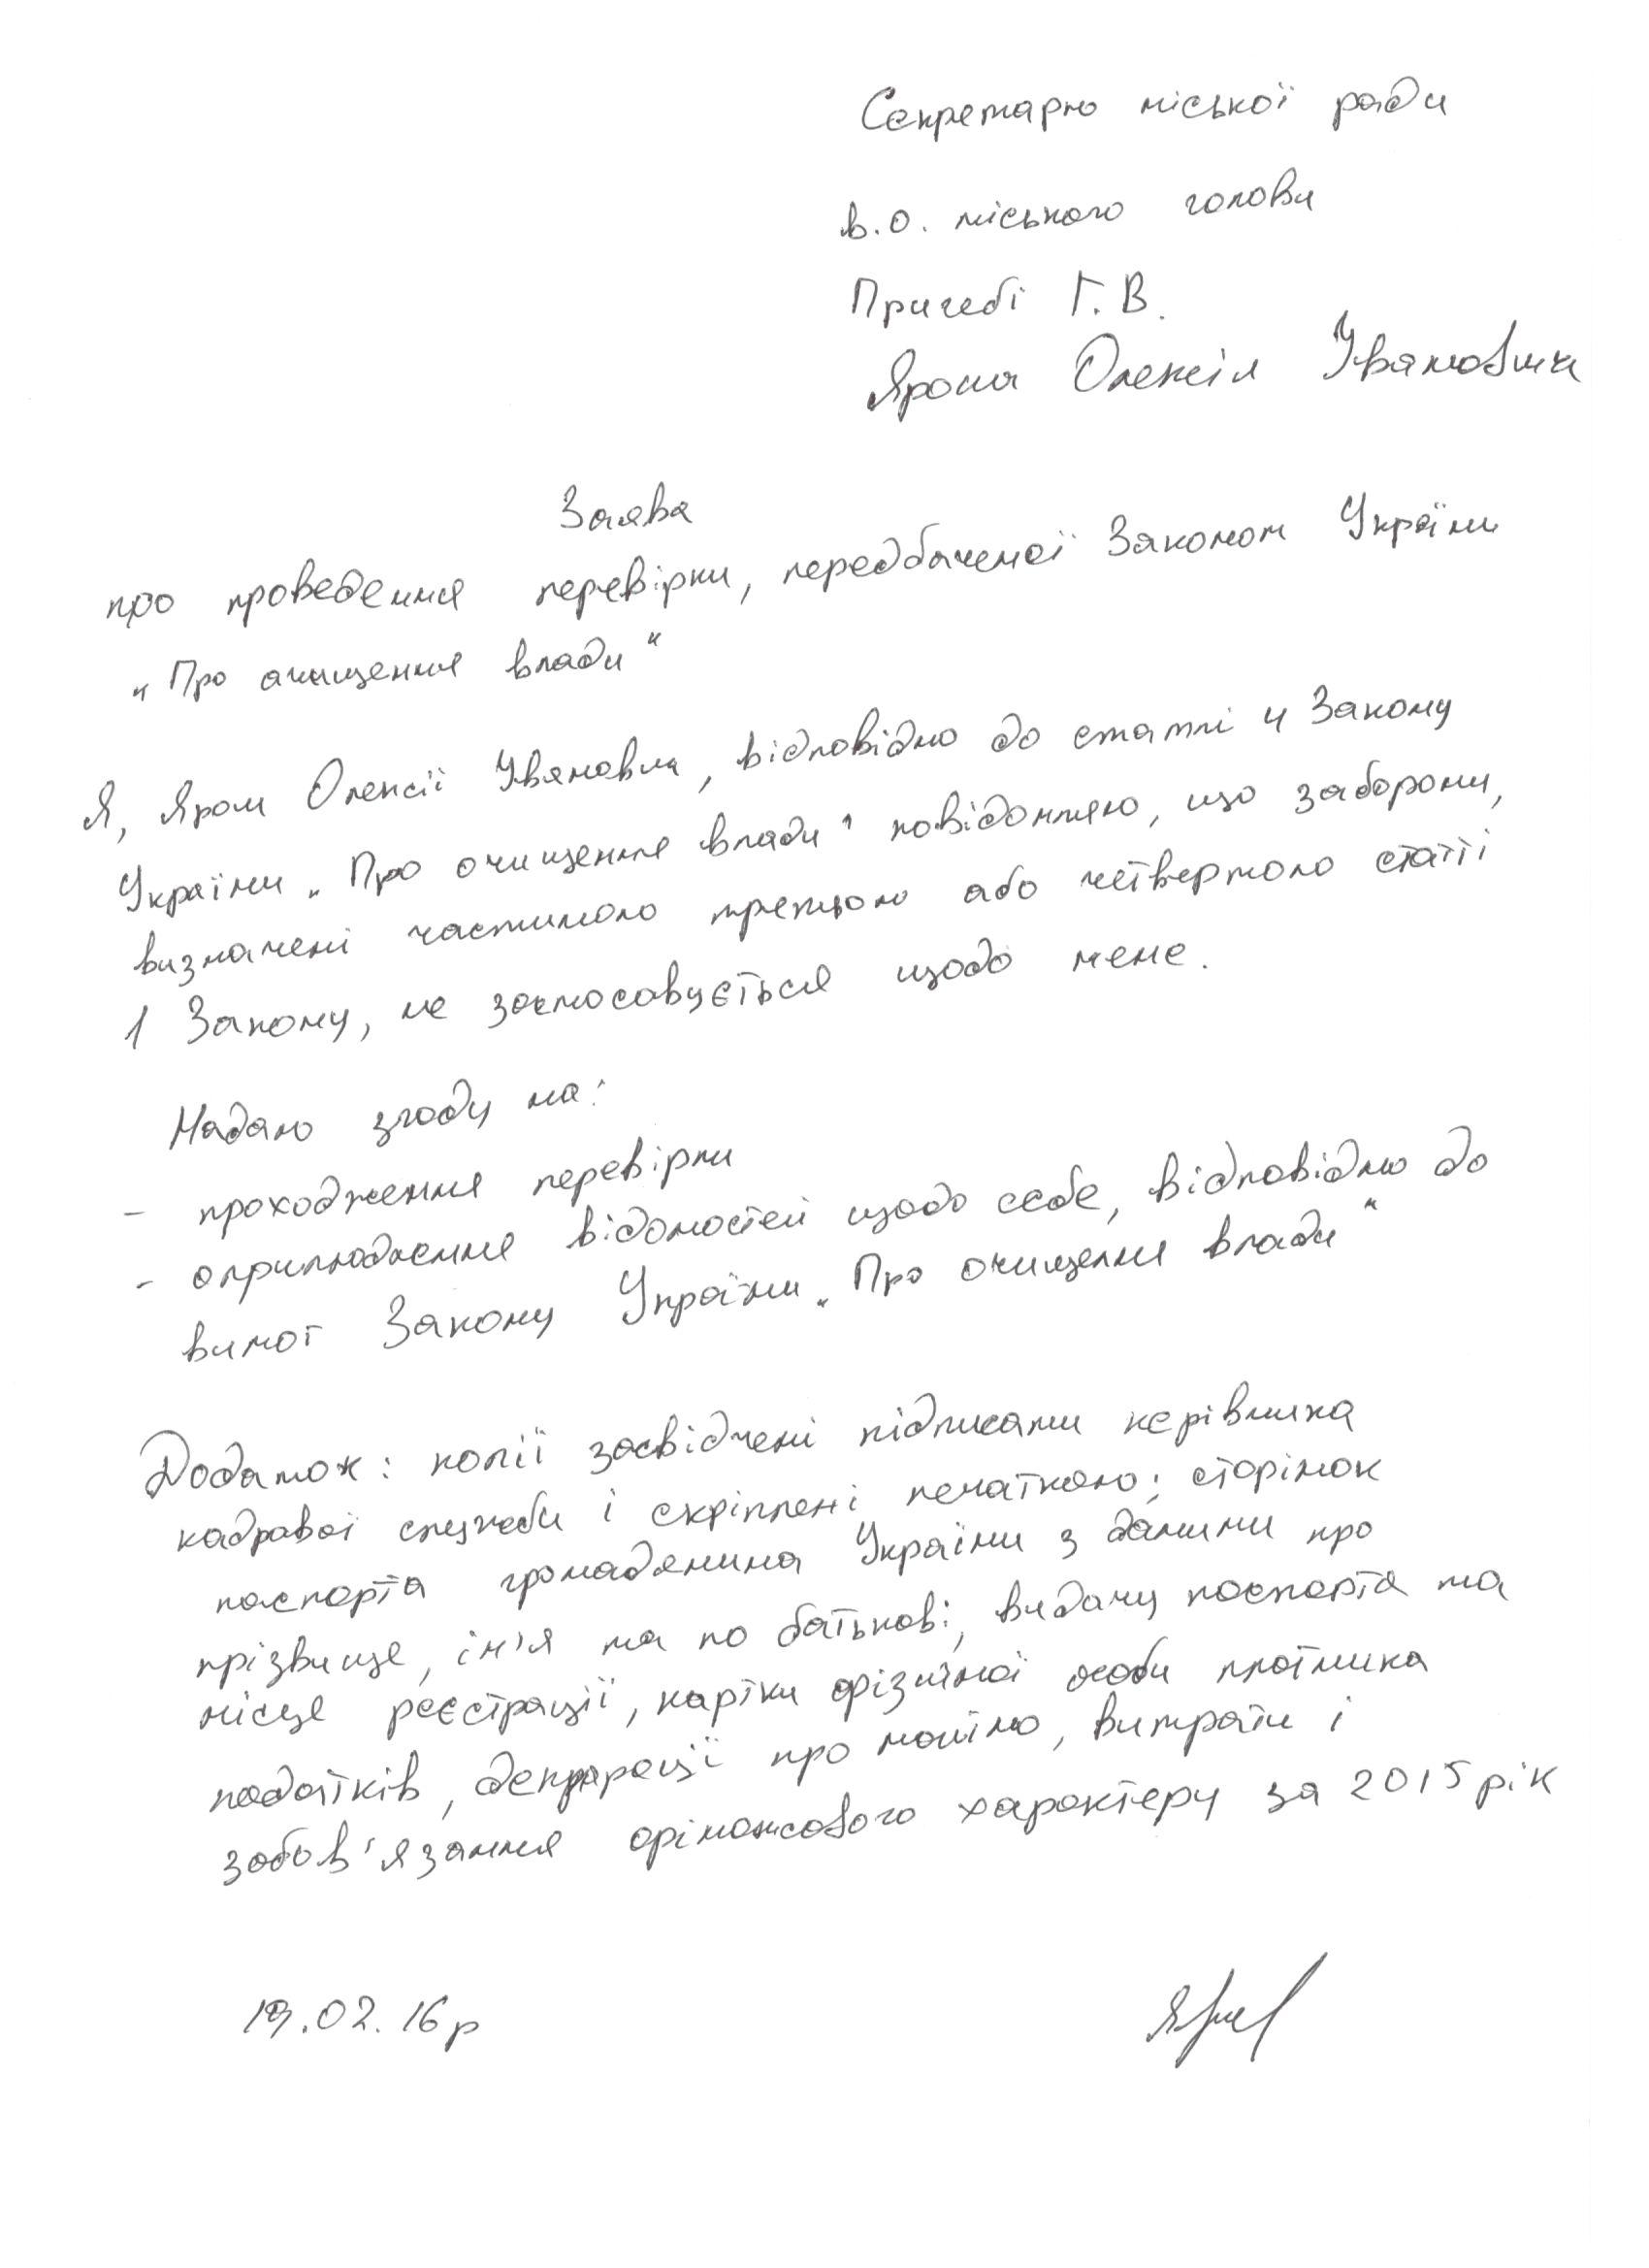 Секретарю міської ради
в.о. міського голови
Пригебі Г.В.
Яроша Олексія Івановича
Заява
про проведення перевірки, передбаченої Законом України
„Про очищення влади"
Я, Ярош Олексій Іванович, відповідно до статті 4 Закону
України „Про очищення влади" повідомляю, що заборони,
визначені частиною третьою або четвертою статті
1 Закону, не застосовується щодо мене.
Надаю згоду на:
- проходження перевірки
- оприлюднення відомостей щодо себе, відповідно до
вимог Закону України „Про очищення влади"
Додаток: копії засвідчені підписами керівника
кадрової служби і скріплені печаткою: сторінок
паспорта громадянина України з даними про
прізвище, ім'я та по батькові, видачу паспорта та
місце реєстрації, картки фізичної особи платника
податків, декларації про майно, витрати і
зобов'язання фінансового характеру за 2015 рік
19.02.16р